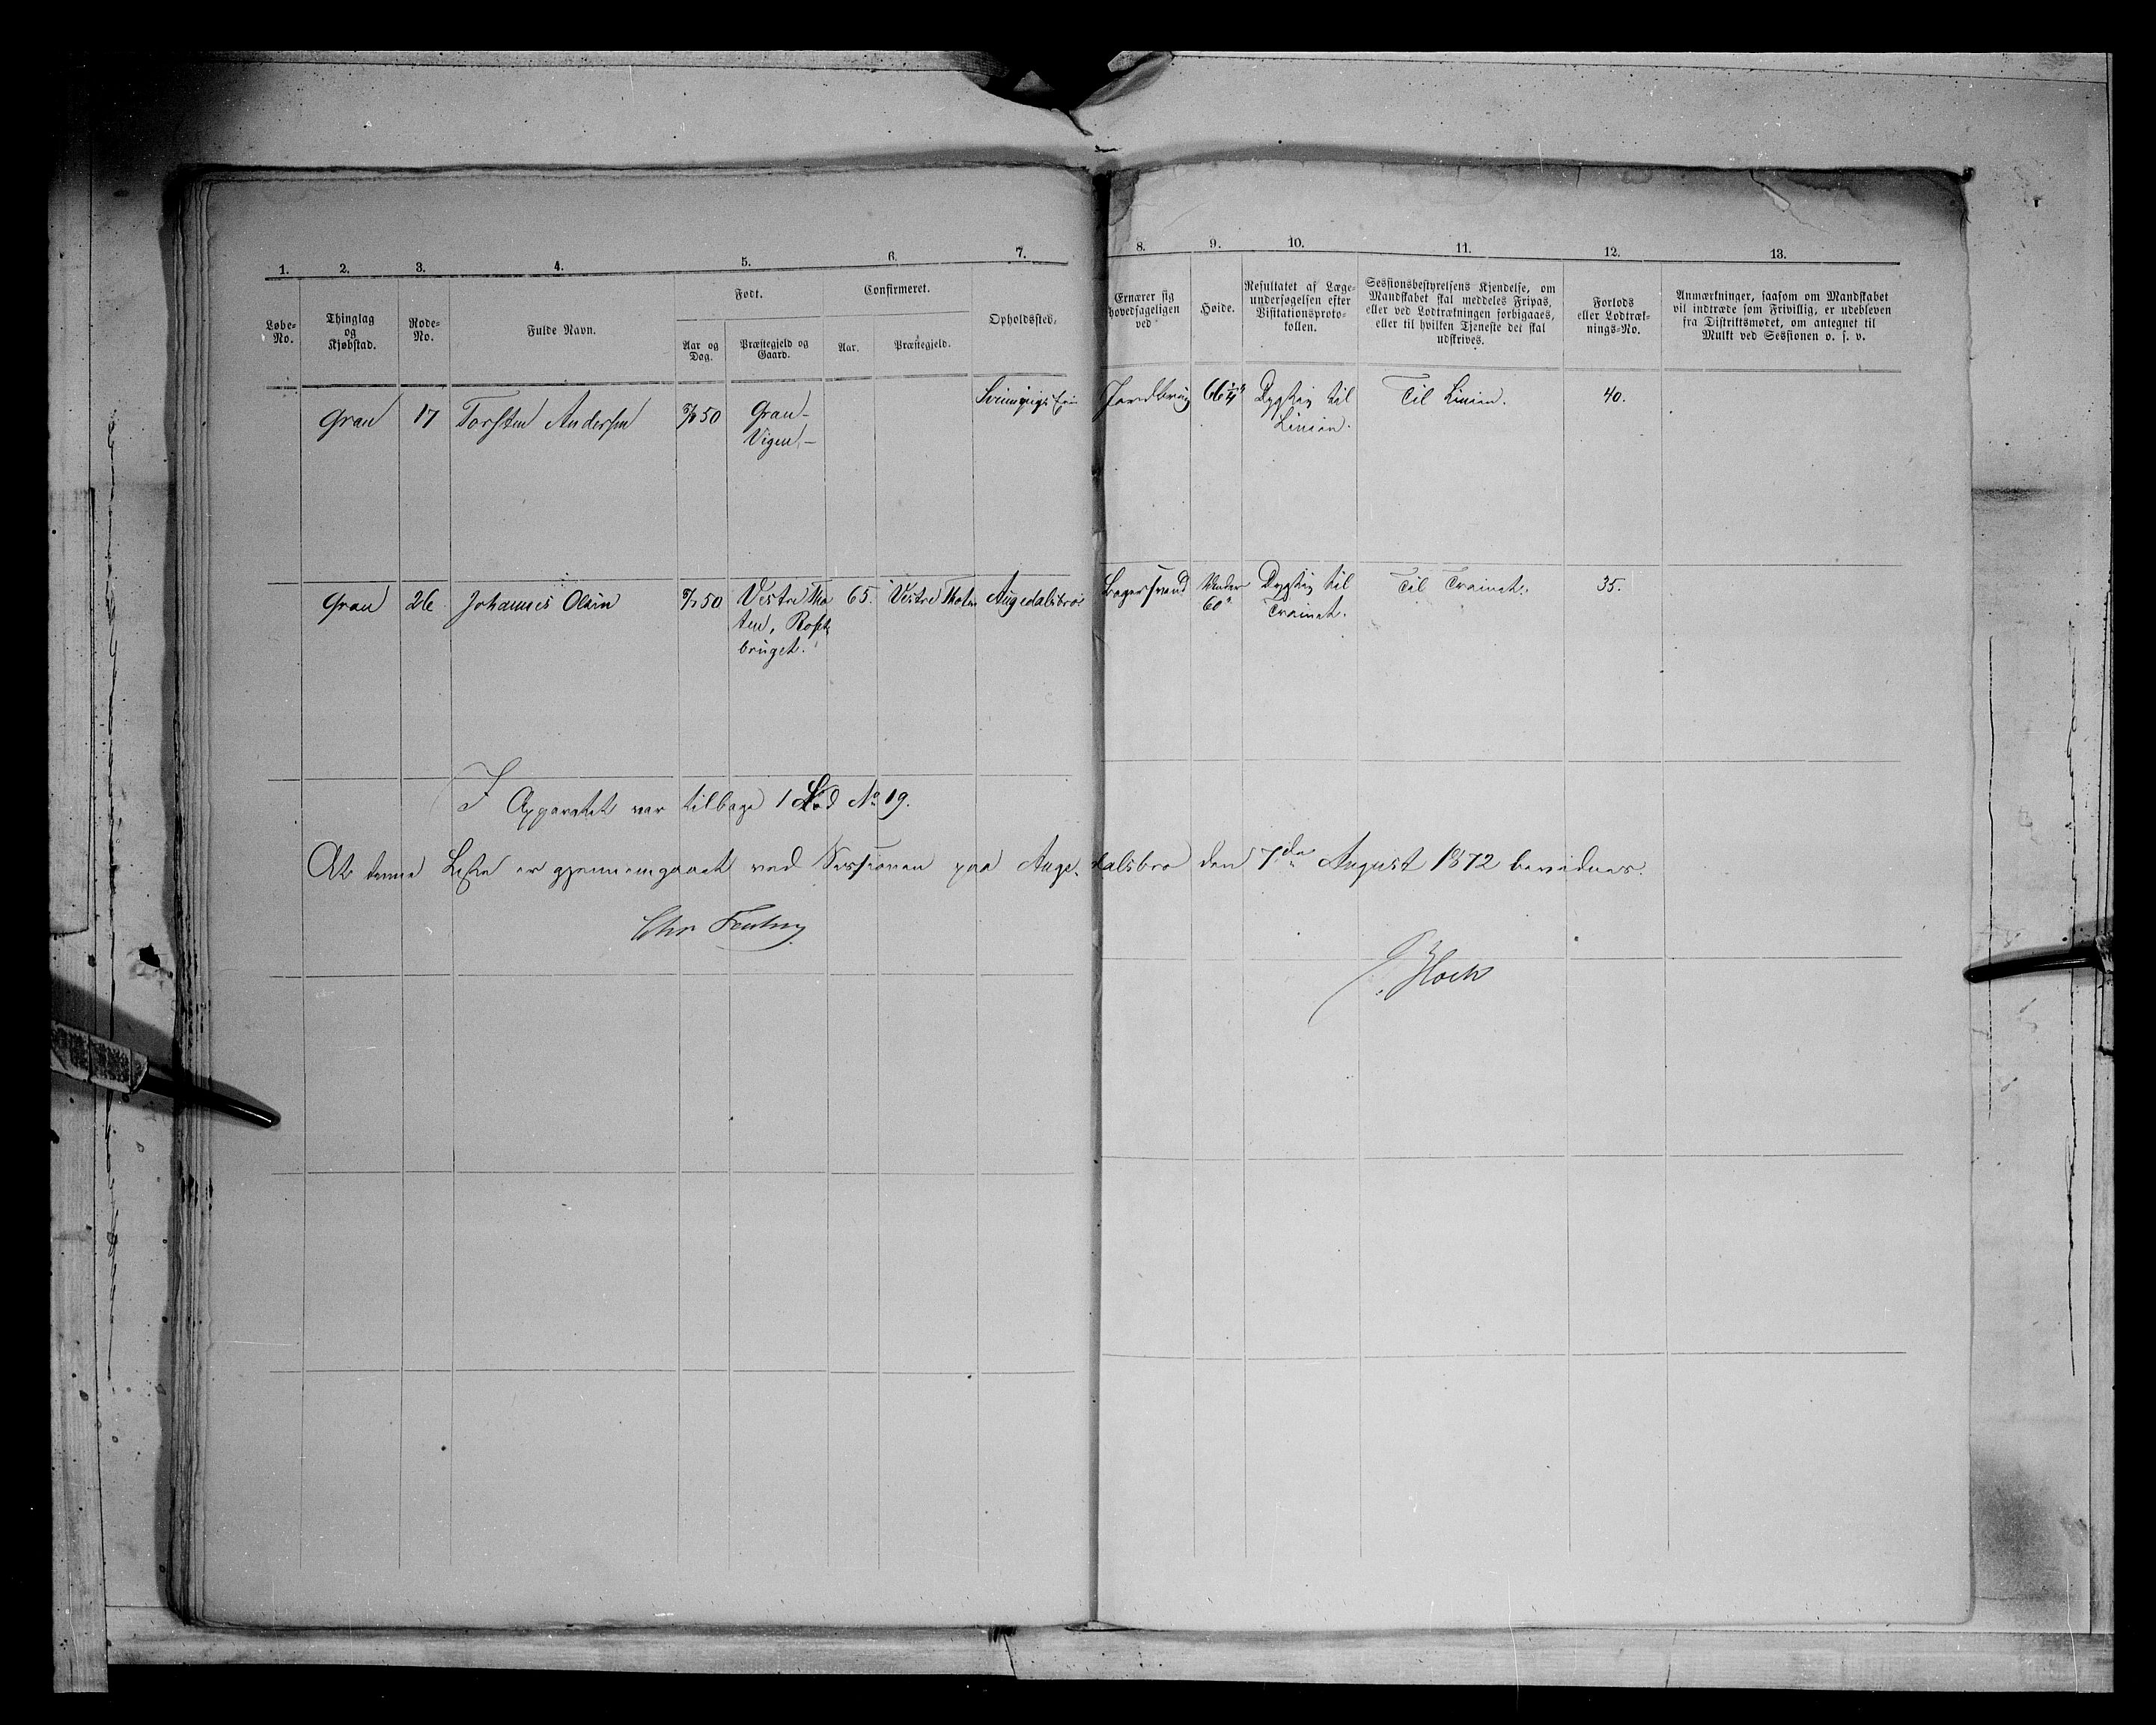 1. 2. 3. 4. 5. 6. 7. 8. 9. 10. 11. 12. 13.
Løbe-No.
Thinglag og Kjøbstad.
Rode-No.
Fulde Navn.
Født.
Aar og Dag.
Præstegjeld og Gaard.
Confirmeret.
Aar.
Præstegjeld.
Opholdssted.
Ernærer sig hovedsageligen ved
Høide.
Resultatet af Læge-undersøgelsen efter Visitationsproto-kollen.
Sessionsbestyrelsens Kjendelse, om Mandskabet skal meddeles Fripas, eller ved Lodtrækningen forbigaaes, eller til hvilken Tjeneste det skal udskrives.
Forlods eller Lodtræk-nings-No.
Anmærkninger, saasom om Mandskabet vil indtræde som Frivillig, er udebleven fra Distriktsmødet, om antegnet til Mulkt ved Sessionen o. s. v.
Gran 17 Torsten Andersen 50 Gran- Jordbrug 66 1/4" Dygtig til Til Linien. 40.
Vigen.- Linien.
Gran 26 Johannes Olsen 50 Vestre Tho 65. Vestre Thoten Augedalsbroe Bagersvend Under Dygtig til Til Trainet. 35.
ten, 60" Trainet.
bruget.
I Apparatet var tilbage 1 Lod No 19.
At denne Liste er gjennemgaaet ved Sessionen paa Augedalsbro den 7de August 1872 bevidnes.
Chr
Hoek